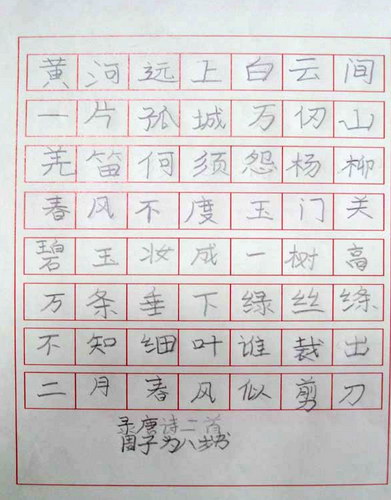 黄河远上白云间
一片孤城万仞山
羌笛何须怨杨柳
春风不度玉门关
碧玉妆成一树高
万条垂下绿丝绦
不知细叶谁裁出
二月春风似剪刀
录唐诗二首
周子为八岁书